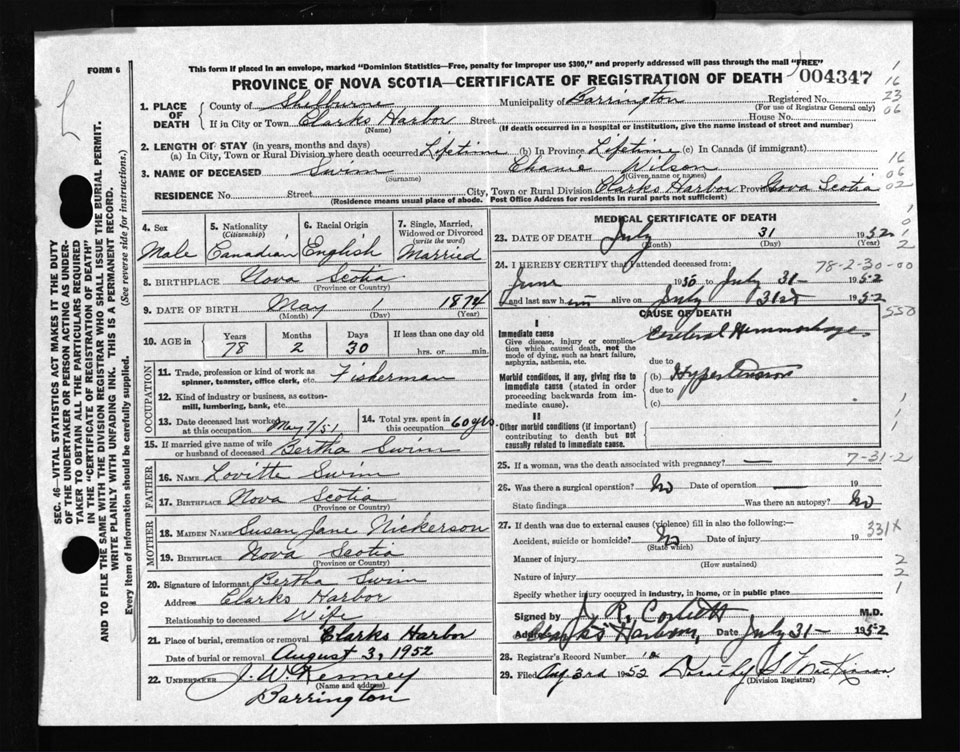 FORM 6
This form if placed in an envelope, marked "Dominion Statistics—Free, penalty for improper use $300," and properly addressed will pass through the mail "FREE"
PROVINCE OF NOVA SCOTIA—CERTIFICATE OF REGISTRATION OF DEATH
004347
1
16
23
06
SEC. 46—VITAL STATISTICS ACT MAKES IT THE DUTY
OF THE UNDERTAKER OR PERSON ACTING AS UNDER-
TAKER TO OBTAIN ALL THE PARTICULARS REQUIRED
IN THE "CERTIFICATE OF REGISTRATION OF DEATH"
AND TO FILE THE SAME WITH THE DIVISION REGISTRAR WHO SHALL ISSUE THE BURIAL PERMIT.
WRITE PLAINLY WITH UNFADING INK. THIS IS A PERMANENT RECORD.
Every item of information should be carefully supplied. (See reverse side for instructions.)
1. PLACE OF DEATH
County of Shelburne Municipality of Barrington Registered No.
(For use of Registrar General only)
If in City or Town Clarks Harbor Street House No.
(Name) (If death occurred in a hospital or institution, give the name instead of street and number)
2. LENGTH OF STAY (in years, months and days)
(a) In City, Town or Rural Division where death occurred Lifetime (b) In Province Lifetime (c) In Canada (if immigrant)
3. NAME OF DECEASED Swim Wilson
(Surname) (Given name or names)
RESIDENCE No. Street City, Town or Rural Division Clarks Harbor Province Nova Scotia
(Residence means usual place of abode. Post Office Address for residents in rural parts not sufficient)
16
06
02
4. Sex
Male
5. Nationality
(Citizenship)
Canadian
6. Racial Origin
English
7. Single, Married,
Widowed or Divorced
(write the word)
Married
8. BIRTHPLACE Nova Scotia
(Province or Country)
9. DATE OF BIRTH May 1 1874
(Month) (Day) (Year)
10. AGE in
Years Months Days If less than one day old
78 2 30 hrs. or min.
OCCUPATION
11. Trade, profession or kind of work as
spinner, teamster, office clerk, etc. Fisherman
12. Kind of industry or business, as cotton-
mill, lumbering, bank, etc.
13. Date deceased last worked
at this occupation May 7/51
14. Total yrs. spent in
this occupation 60 yrs.
15. If married give name of wife
or husband of deceased Bertha Swim
FATHER
16. NAME Lovitte Swim
17. BIRTHPLACE Nova Scotia
(Province or Country)
MOTHER
18. MAIDEN NAME Susan Jane Nickerson
19. BIRTHPLACE Nova Scotia
(Province or Country)
20. Signature of informant Bertha Swim
Address Clarks Harbor
Relationship to deceased Wife
21. Place of burial, cremation or removal Clarks Harbor
Date of burial or removal August 3, 1952
22. UNDERTAKER J. W. Kenney
(Name and address)
Barrington
MEDICAL CERTIFICATE OF DEATH
23. DATE OF DEATH July 31 1952
(Month) (Day) (Year)
24. I HEREBY CERTIFY that I attended deceased from:
78-2-30-00
June 1950 to July 31 - 1952
and last saw him alive on July 31st 1952
CAUSE OF DEATH
550
I
Immediate cause
Give disease, injury or complica-
tion which caused death, not the
mode of dying, such as heart failure,
asphyxia, asthenia, etc.
Cerebral Hemmorhage
due to
Morbid conditions, if any, giving rise to
immediate cause (stated in order
proceeding backwards from im-
mediate cause).
(b) Hypertension
due to
(c)
II
Other morbid conditions (if important)
contributing to death but not
causally related to immediate cause.
25. If a woman, was the death associated with pregnancy? —
7-31-2
26. Was there a surgical operation? No Date of operation — 19
State findings Was there an autopsy? No
27. If death was due to external causes (violence) fill in also the following:—
331x
Accident, suicide or homicide? No Date of injury 19
(State which)
Manner of injury
(How sustained)
Nature of injury
Specify whether injury occurred in industry, in home, or in public place
2
2
1
Signed by J. R. Corbett M.D.
Address Clarks Harbour, Date July 31 - 1952
28. Registrar's Record Number
29. Filed Aug 3rd 1952 Dorothy S. MacKinnon
(Division Registrar)